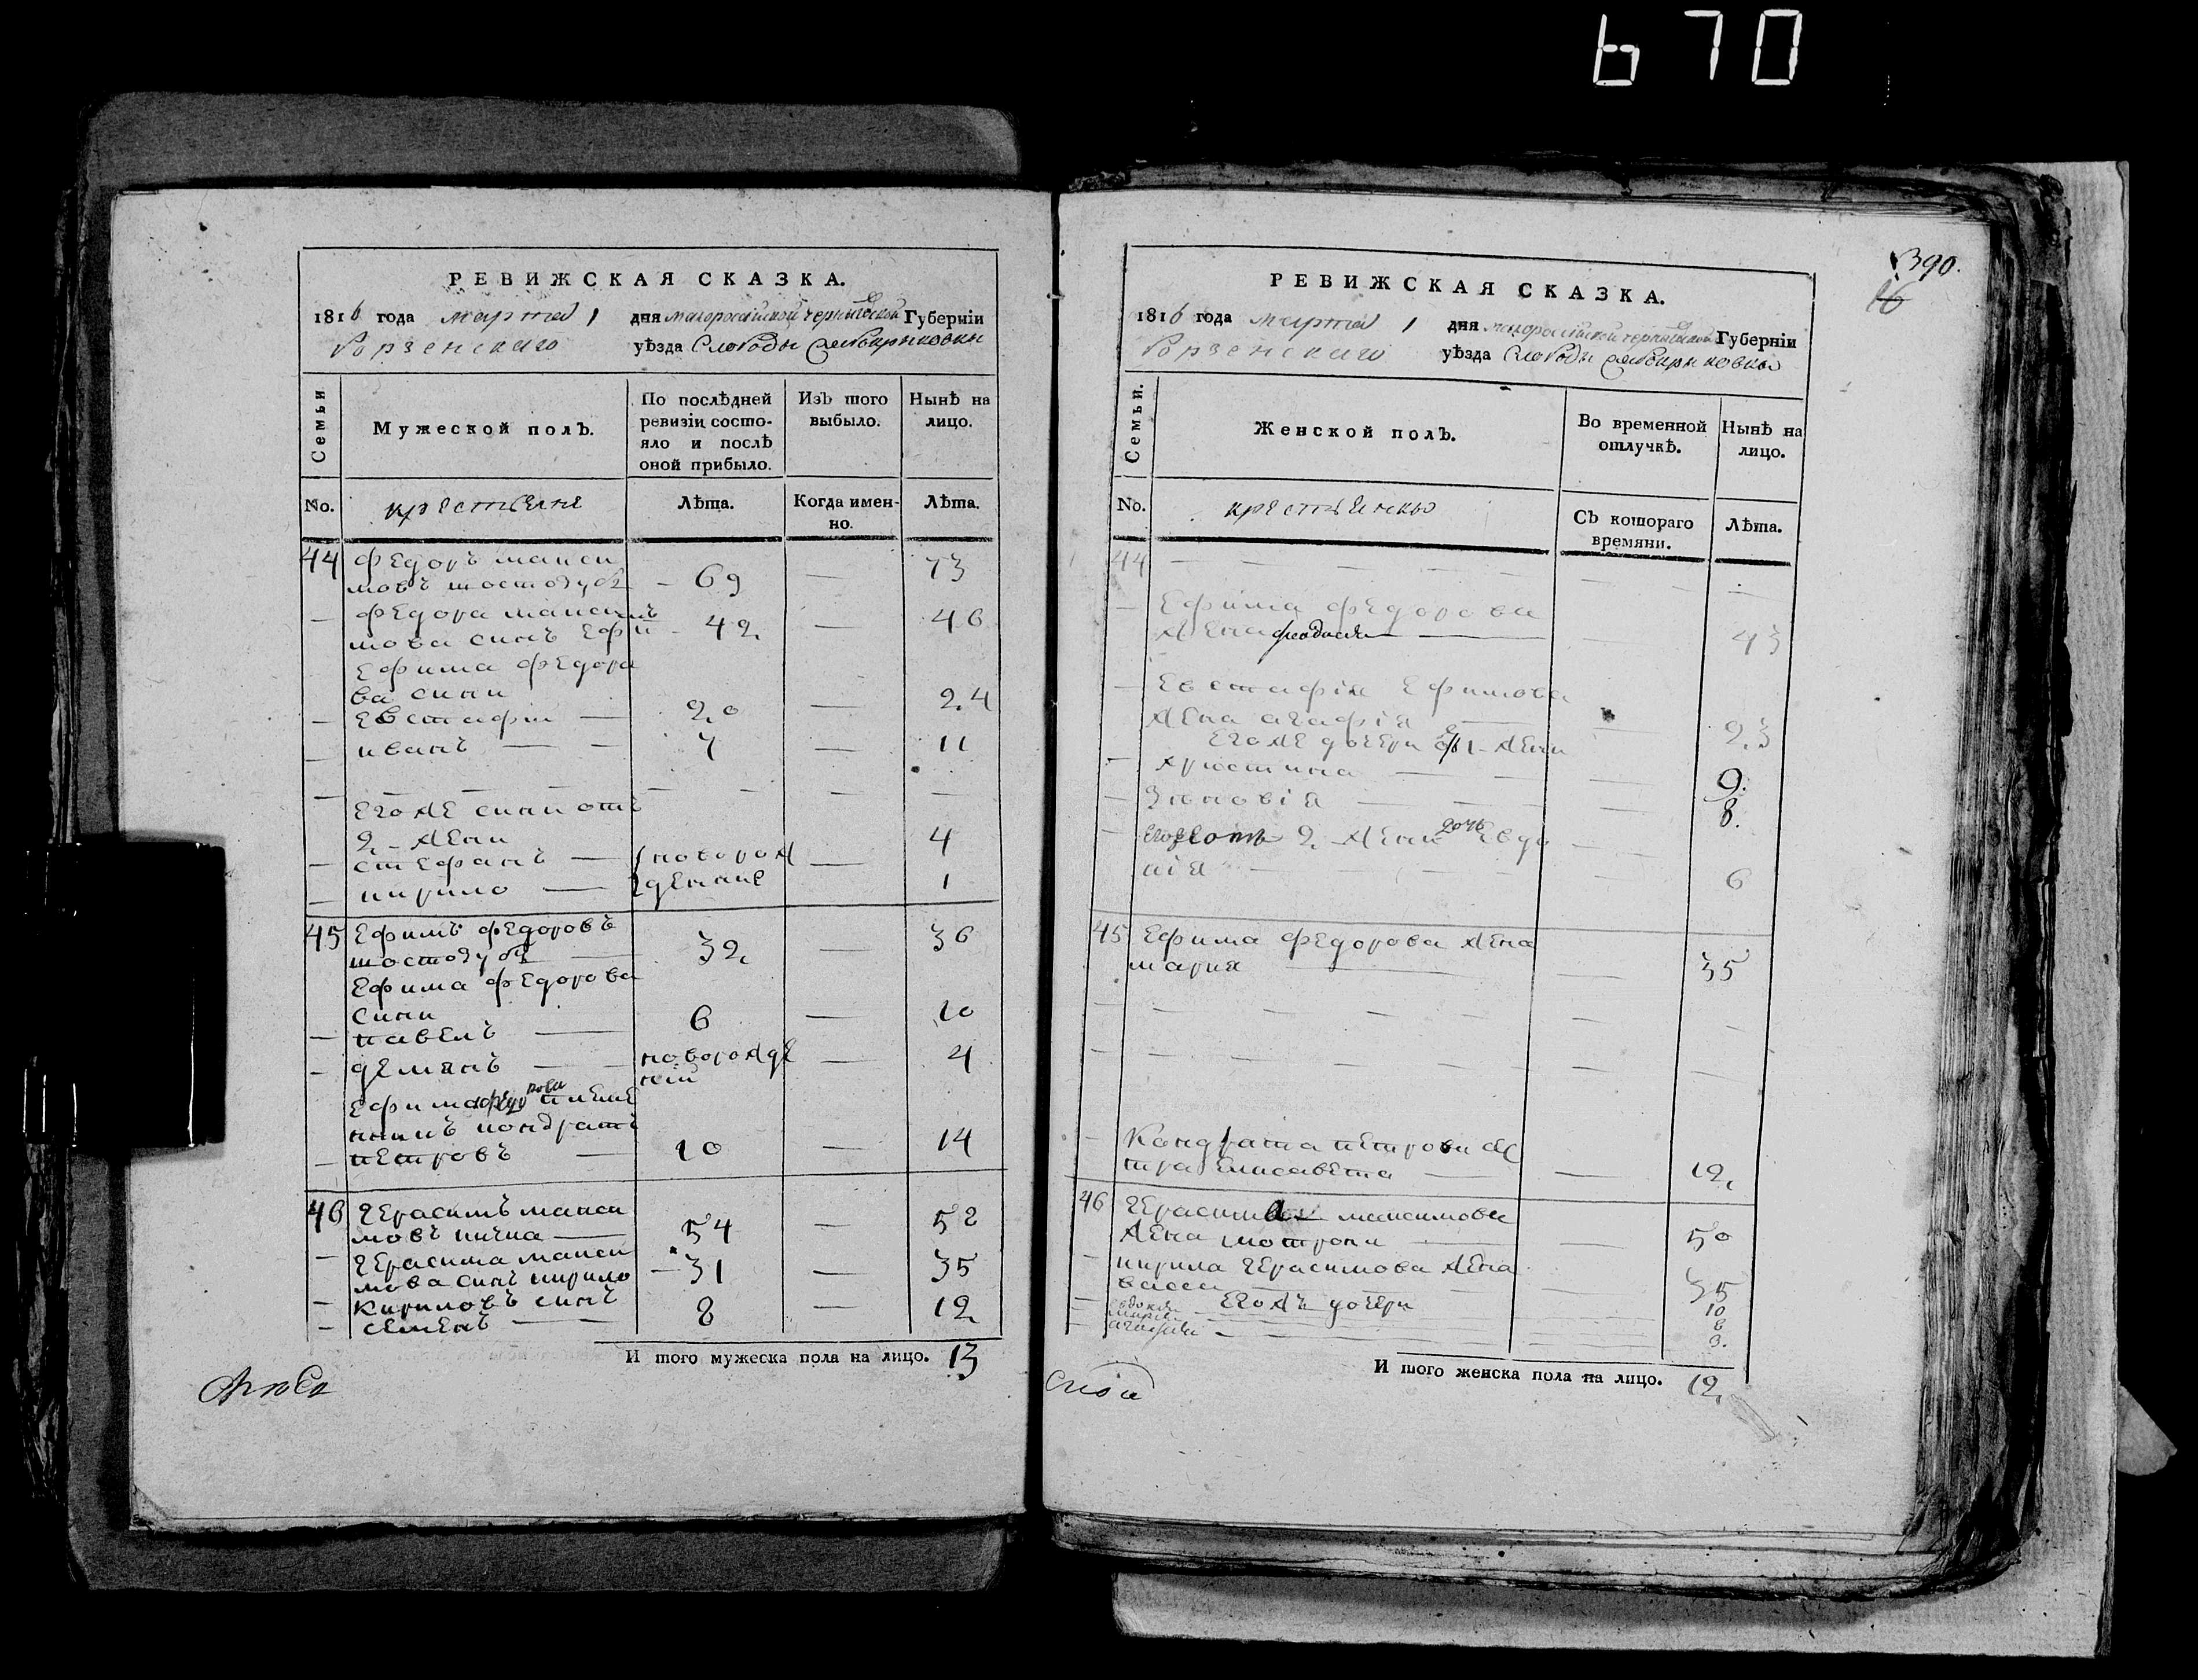 670
РЕВИЖСКАЯ СКАЗКА.
1816 года марта 1 дня малоросийской черниговской Губерніи
Борзенского уѣзда Слободы
Семьи
Мужеской полъ.
По послѣдней ревизіи состояло и послѣ оной прибыло.
Изъ того выбыло.
Нынѣ на лицо.
No.
крестьяне
Лѣта.
Когда именно.
Лѣта.
44 Федоръ макси
мовъ шостозубъ – 69 — 73
— Федора макси
мова синъ Ефимъ – 42 — 46
Ефима Федоро
ва сини
— Евстафи — 20 — 24
— иванъ — 7 — 11
— — — — — — — —
Егоже сини отъ
2 - жени
— стефанъ — новорож — 4
— кирило — денние 1
45 Ефимъ Федоровъ
шостозубъ — 32 — 36
Ефима Федорова
сини
— павелъ — 6 — 10
— демянъ — новорожде — 4
ній
Ефима Федорова племе
нникъ кондратъ
— петровъ — 10 — 14
46 Герасимъ макси
мовъ кичка — 54 — 58
— Герасима макси
мова синъ кирило — 31 — 35
— Кириловъ синъ
— семенъ — 8 — 12
И того мужеска пола на лицо. 13
390.
16
РЕВИЖСКАЯ СКАЗКА.
1816 года марта 1 дня малоросийской черниговской Губерніи
Борзенского уѣзда Слободы
Семьи.
Женской полъ.
Во временной отлучкѣ.
Нынѣ на лицо.
No.
крестьянки
Съ котораго времяни.
Лѣта.
44 — — — — — —
— Ефима Федорова
жена феодосия — — 43
— Евстафія Ефимова
жена агафія — — 23
Егоже дочери от 1 - жени
— христина — — 9.
— Зиновія — — 8.
— Егоже от 2 - жени дочь Евдо
кія — — 6
45 Ефима Федорова жена
мария — — 35
— — — — — — —
— — — — — — —
— Кондрата петрова сес
тра Елисавета — — 12
46 Герасима максимова
жена мотрона — — 50
— кирила Герасимова жена
васса — 35
Егожъ дочери
— евдокия — 10
— мария — 6
— агафия — 3.
И того женска пола на лицо. 12